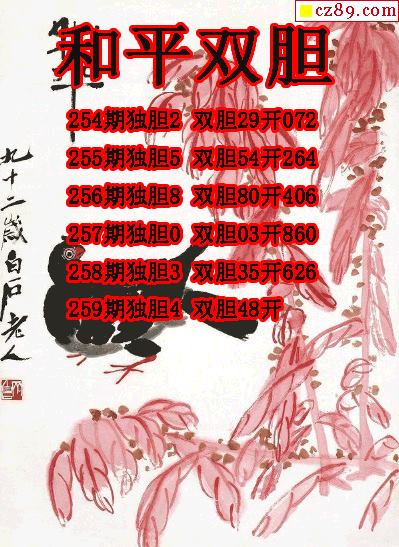 cz89.com
和平双胆
254期独胆2 双胆29开072
255期独胆5 双胆54开264
256期独胆8 双胆80开406
257期独胆0 双胆03开860
258期独胆3 双胆35开626
259期独胆4 双胆48开
九十二岁白石老人